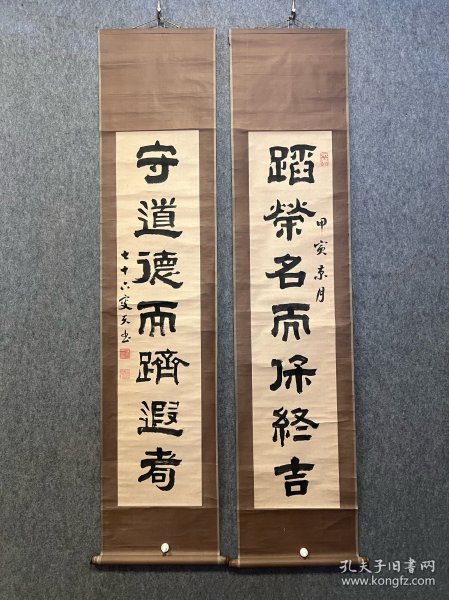 蹈榮名而保終吉
甲寅京月
守道德而躋遐耇
七十六叟天书
孔夫子旧书网
www.kongfz.com